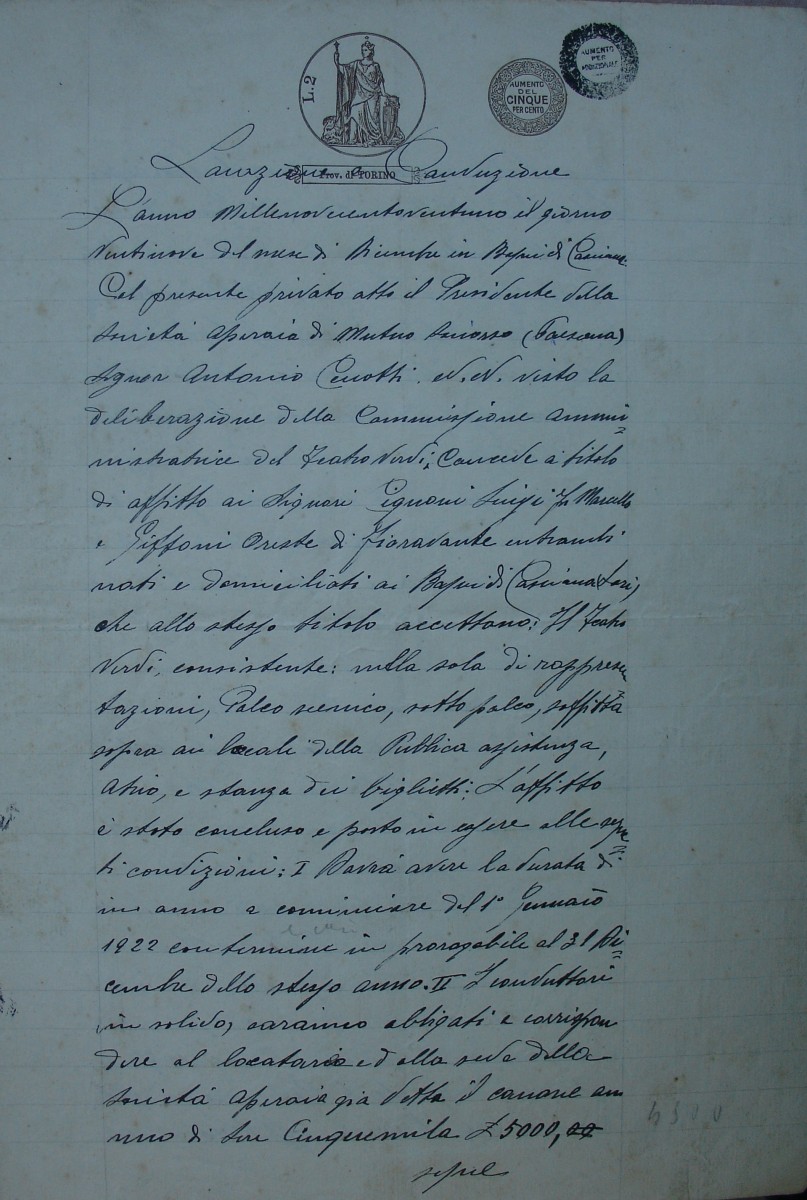 L. 2
AUMENTO
DEL
CINQUE
PER CENTO
AUMENTO
PER
Prov. di TORINO
Locazione e Conduzione
L'anno Millenovecentoventuno il giorno
Ventinove del mese di Dicembre in Bagni di Casciana.
Col presente privato atto il Presidente della
Società Operaia di Mutuo Soccorso (Toscana)
Signor Antonio Cenotti. N.N. visto la
deliberazione della Commissione ammi=
nistratrice del Teatro Verdi, Concede a titolo
di affitto ai Signori Cignoni Luigi fu Marcello
e Giffoni Oreste di Fioravante entrambi
nati e domiciliati ai Bagni di Casciana Lari,
che allo stesso titolo accettano: Il Teatro
Verdi, consistente: nella sala di rappresen=
tazioni, Palco scenico, sotto palco, soffitta
sopra ai locali della Pubblica assistenza,
Atrio, e stanza dei biglietti: L'affitto
è stato concluso e posto in essere alle seguen=
ti condizioni: I Dovrà avere la durata di
un anno a cominciare del 1° Gennaio
1922 con termine in prorogabile al 31 Di=
cembre dello stesso anno. II I conduttori
in solido, saranno obligati e corrispon
dere al locatario ed alla sede della
Società Operaia già detta il canone an
nuo di Lire Cinquemila £ 5000,00
segue